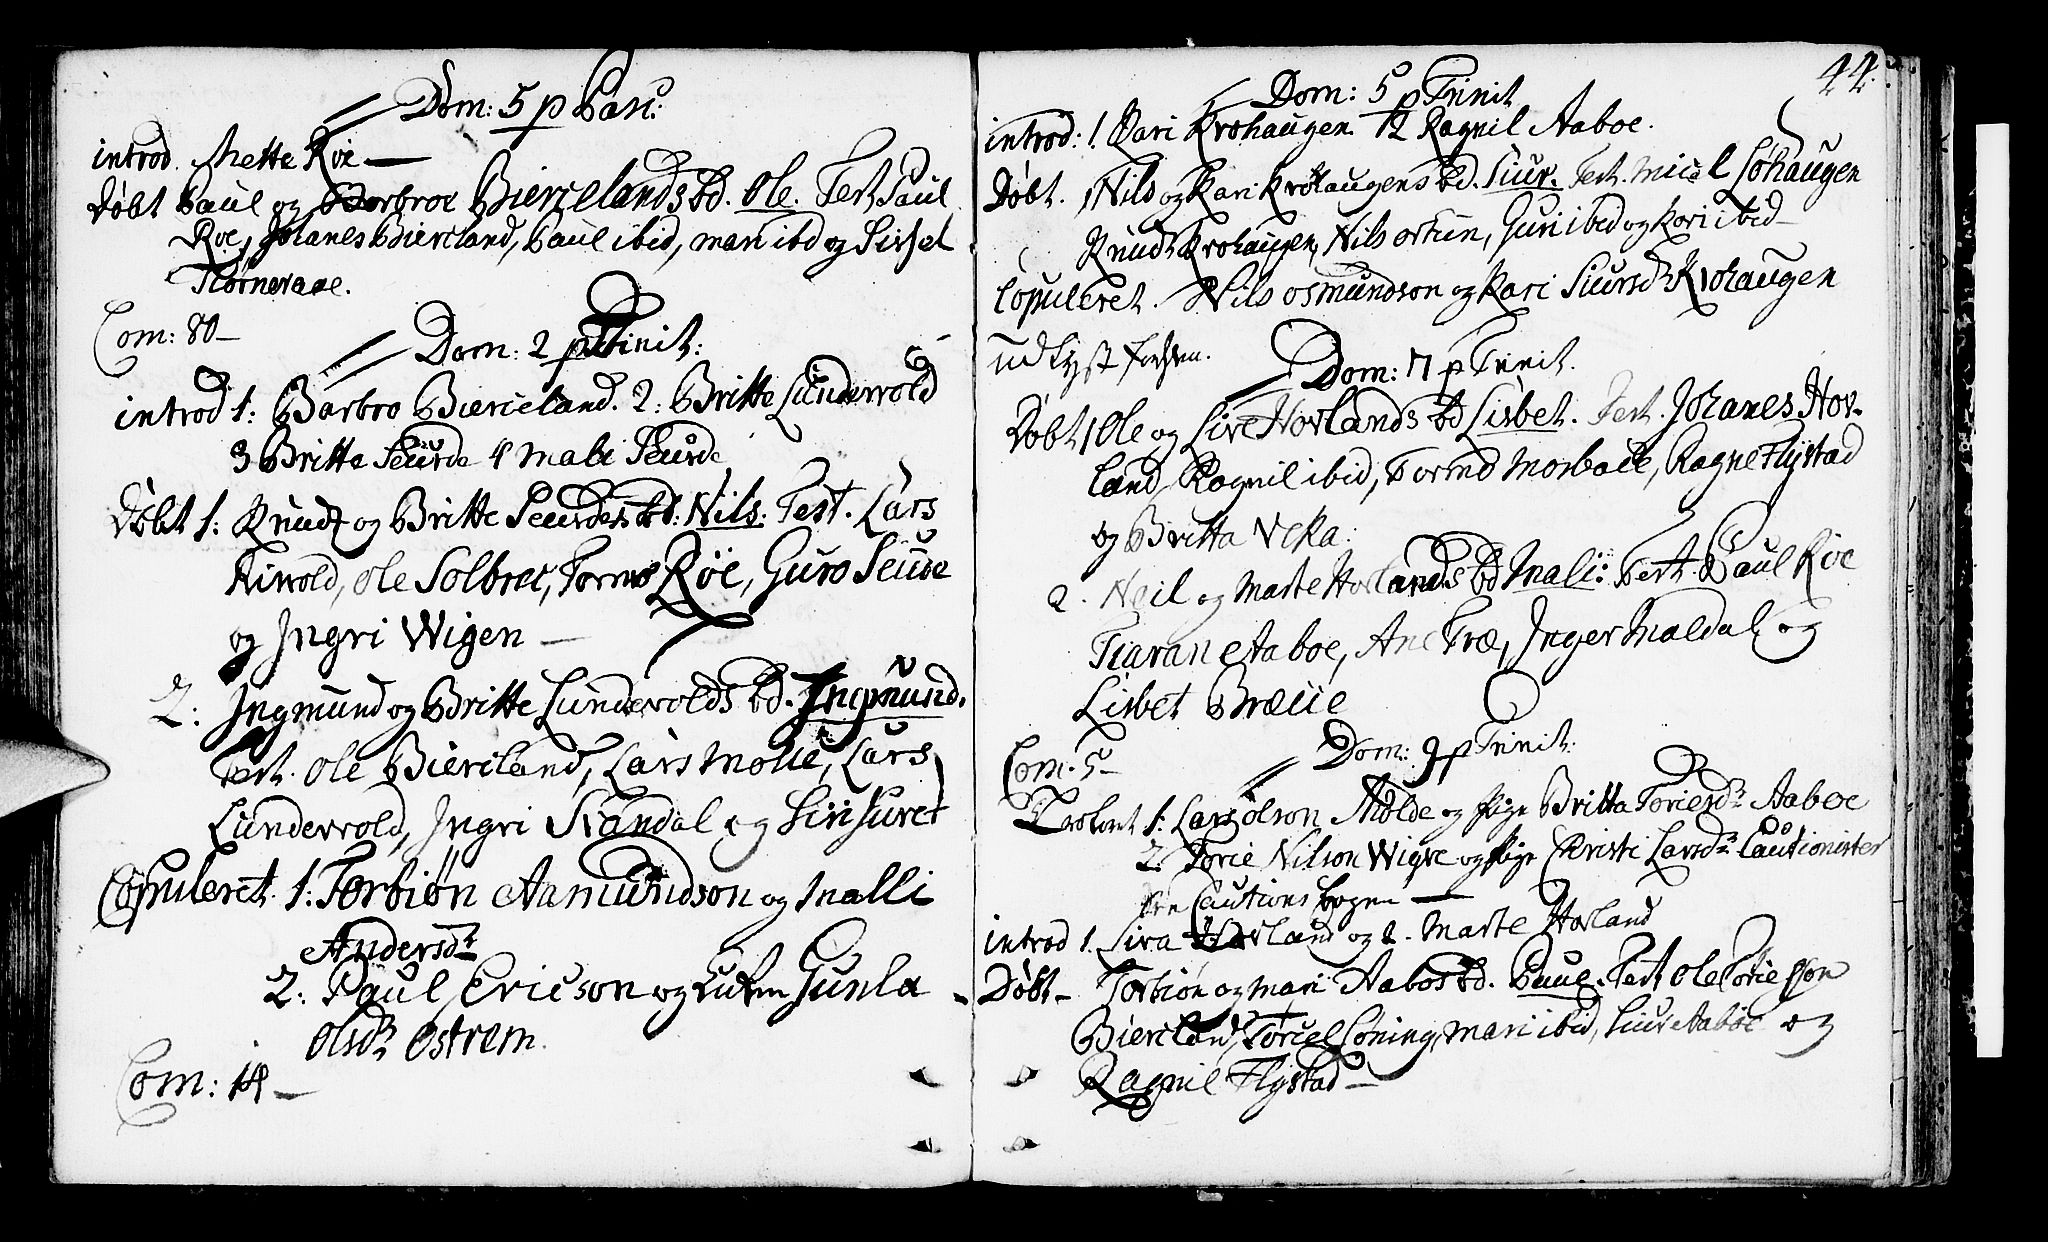 Dom: 5 p Pasc:
introd. Mette Røe —
Døbt Paul og Barbroe Biercelands bd. Ole. Test Paul
Roe, Johanes Biercland, Paul ibid, mari ibd og Sissel
Tiørneraae.
Com: 80 —
Dom: 2 p Trinit:
introd 1: Barbro Biercieland. 2: Britte Lundevold
3 Britte Seurde 4 Mali Seurde
Døbt 1: Knud og Britte Seurdes bd: Nils. Test. Lars
Kirvold, Ole Solbrec, Tormo Röe, Guro Seurde
og Ingri Wigen —
2: Ingmund og Britte Lundevolds bd. Ingmund.
Test. Ole Biercland, Lars Molle, Lars
Lundevold, Ingri Svandal og Siri
Copuleret. 1: Torbiön Aamundson og Malli
Andersdr
2: Paul Ericson og Gunla
Olsdr Ostrem.
Com: 14 —
44.
Dom: 5 p Trinit
introd: 1. Kari Krohaugen. 2 Ragnil Aaboe.
Døbt. Nils og Kari Krohaugens bd. Siur. Test. Micel Lohaugen
Knud Krohaugen, Nils ortun, Guri ibid og Kari ibid —
Copuleret. Nils osmundson og Kari Siursdr Krohaugen
Dom: 7 p Trinit.
Døbt 1 Ole og Sire Hovlands bd Lisbet. Test. Johanes Hov-
land, Ragnil ibid, Tormo Mosbace, Ragne Flystad
og Britta Veka.
2. Neil og Marte Hovlands bd Mali: Test. Paul Roe
Tiaran Aaboe, Ane Træ, Inger Maldal og
Lisbet Bræcie
Com. 5 —
Dom: 9 p Trinit:
Trolovet 1: Lars Olson Molde og Pige Britta Toriesdr Aaboe
2. Torie Nilson Wigre og Pige Christi Larsdr Cautionister
Cautions bogen —
introd 1. Sira Hovland og 2. Marte Hovland
Døbt — Torbiøn og mari Aabos bd. Paul. Test Ole Toriesson
Biercland, Torcel Loning, mari ibid, Siur Aaboe og
Ragnil Flystad —